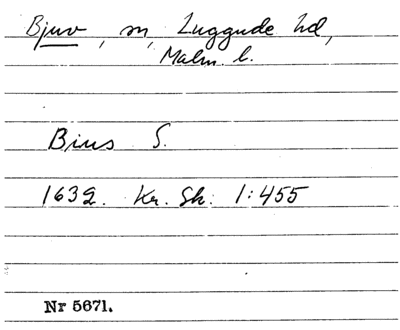 Bjuv, sn, Luggude hd,
Malm. l.
Bius S.
1632. Kr. Sk. 1:455
Nr 5671.